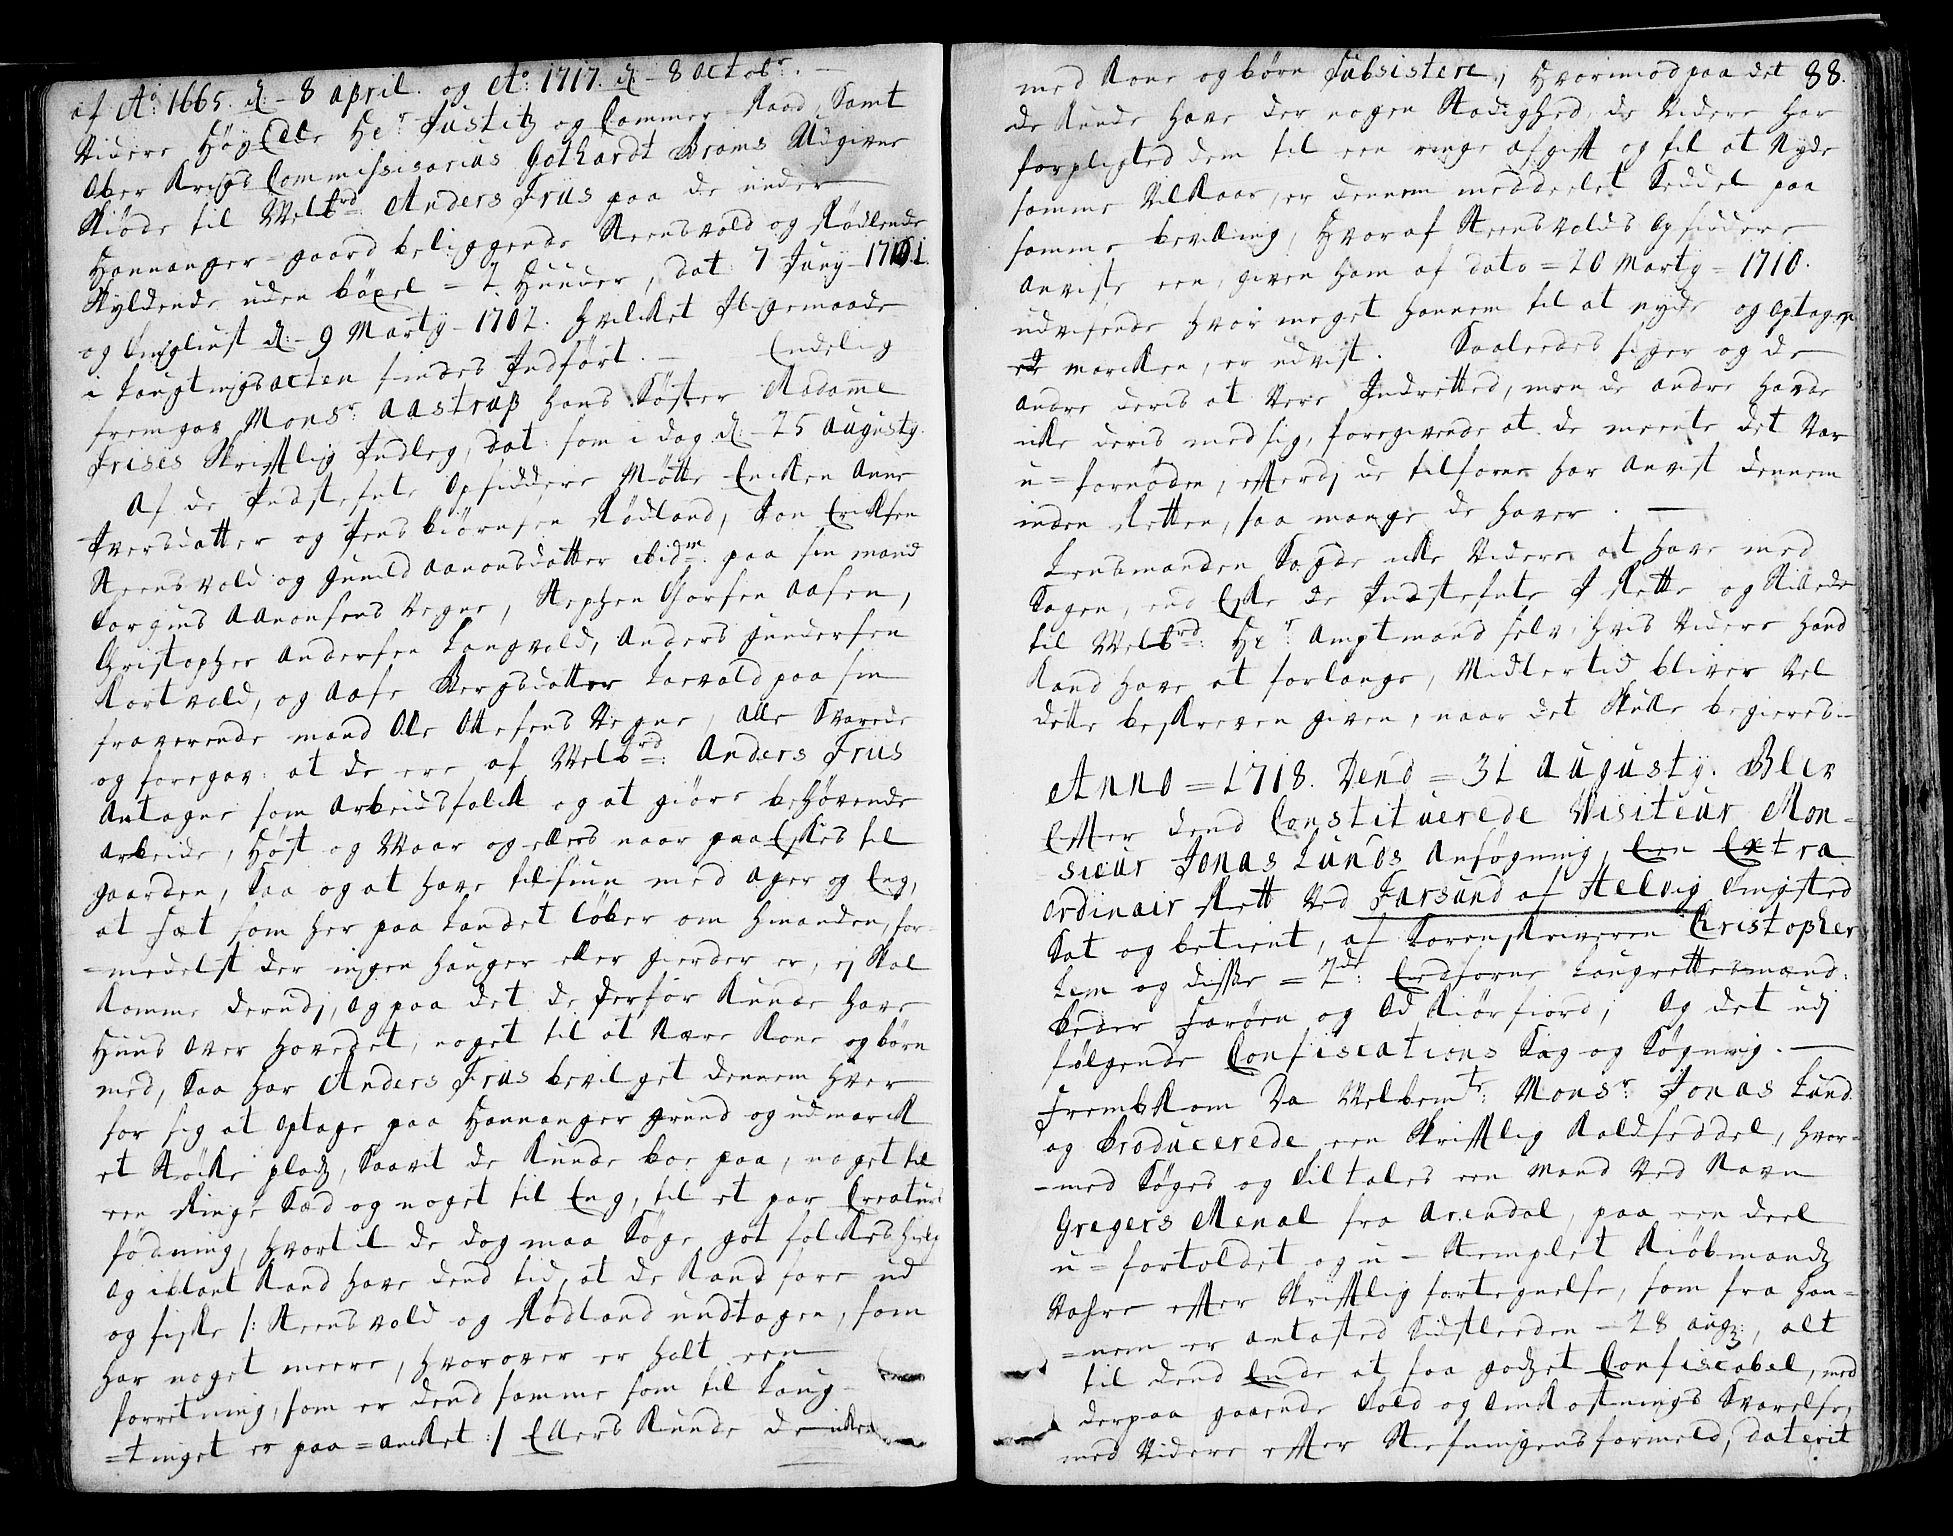 af A:o 1665. d: 8 april. og A:o 1717. d - 8 octobr. —
Videre Höy Edle Hr. Justitz og Cammer Raad, samt
Ober Krigs Commissisarius Gothardt Brams Udgivne
Skiöde til Welbrd: Anders Friis paa de under
Hannanger-gaard beliggende Steensvold og Rödlende
Skyldende uden böxel = 2 Huuder, dat: 7 Juny 1701.
og tingliust d: 9 Marty - 1702. hvilket Iligemaade
i Laugtingsacten findes Indfört. — Endelig
fremgav Monsr. Aastrup hans Söster Madame
Friises Skrifftlig Indleg, dat: som i dag d: 25 augusty.
Af de Indstefnte Opsiddere Mötte Encken Anne
Iversdatter og Jens biörnsen Rödland, Jon Ericksen
Steensvold og Gunild Aanonsdatter ibidm. paa sin mand
Torgius Aanonsens Vegne, Stephen Thorsen Aasen,
Christopher Andersen Langvold, Anders Gundersen
Kortvold, og Aase Bergsdatter Lervold paa sin
fraverende mand Ole Olesens Vegne, Alle Svarede
og foregav: at de ere af Welbrd: Anders Friis
Antagne som Arbeidsfolck og at giöre behövende
Arbeide, Höst og Vaar og ellers naar paaEskes til
gaarden, Saa og at have tilsiun med Ager og Eng,
at Fæt som her paa Landet löber om hinanden, for-
=medelst der ingen hauger eller gierder er, ej skal
komme derudj, Og paa det de derfor kunde have
Huus Over Hovedet, noget til at nære Kone og börn
med, Saa har Anders Friis bevilget dennem hver
for sig at Optage paa Hannanger grund og udmarck
et stöcke pladz, Saavit de kunde boe paa, noget til
een Ringe Sæd og noget til Eng, til et par Creaturs
födning, hvortil de dog maa Söge got folckes hielp
Og iblant kand have dend tid, at de kand fare ud
og fiske /: Steensvold og Rödland undtagen, som
har noget meere, hvorover er holt een
forretning, som er dend samme som til Laug-
=tinget er paa=ancket :/ Ellers kunde de icke
med Kone og börn Subsistere, Hvorimod paa det 88.
de kunde have der nogen Stadighed, de Videre har
forpligted dem til een ringe afgifft og til at Nyde
samme Vilkaar, er dennem meddeelet Seddel paa
samme bevilling, Hvoraf Steensvolds Opsiddere
Anviste een, given ham af dato = 20 Marty = 1710.
udvisende hvor meget hannem til at nyde og Optage
marcken, er udvist. Saaledes siger og de
Andre deris at Vere Indretted, men de andre havde
icke deris med sig, foregivende at de meente det Var
u=fornöden, efterdj de tilforne har Anvist dennem
inden Retten, saa mange de haver. —
Lensmanden Sagde icke Videre at have med
Sagen, end Eske de Indstefnte I Rette og Stillede
til Welbrd: Hr. Amptmand selv, hvis Videre Hand
kand have at forlange, Midlertid bliver Vel
dette beskreven given, naar det skulle begieres —
Anno = 1718. Dend = 31 Augusty. Blev
Effter dend Constituerede Visiteur Mon-
sieur Jonas Lunds Ansögning, Een Extra
Ordinair Rett Ved Farsund af Helvig Tingsted
Sat og betient, af Sorenskriveren Christopher
Lem og disse = 2de: Eedsorne Laugrettesmænd:
Peder Faröen og Od Kiörfiord; Og det udj
fölgende Confiscations Sag og Sögning. —
Fremkom Da Welbemte: Monsr. Jonas Lund.
og Producerede een Skrifftlig Kaldseddel, hvor-
=med Söges og Tiltales een Mand Ved Navn
Gregers Menal fra Arendal, paa een deel
u=fortoldet og u=Stemplet Kiöbmandz
Vahre effter Skrifftlig fortegnelse, som fra han-
=nem er antasted Sidstleeden - 28 aug:, alt
til dend Ende at faa godzet Confiscabel, med
derpaa gaaende Told og Omkostnings Svarelse,
med Videre effter Stefningens formeld, daterit